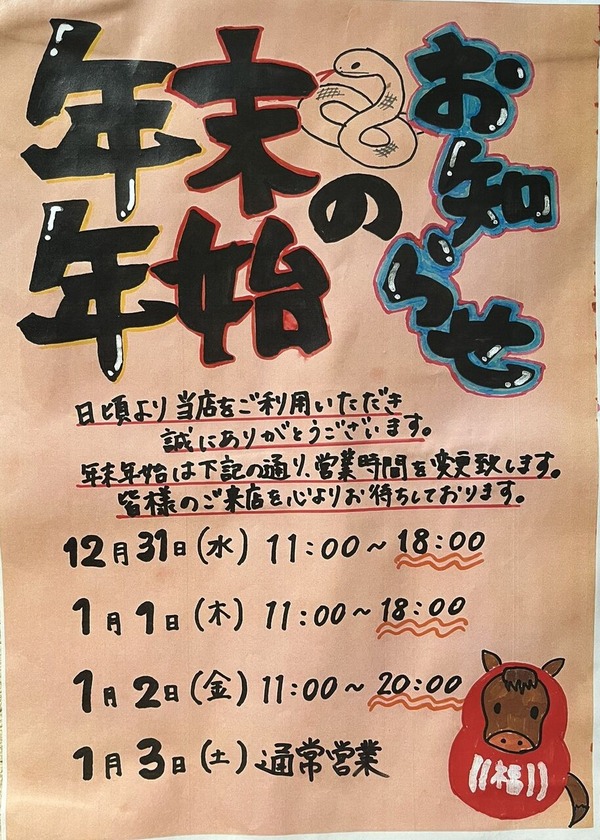 年末
年始
の
お知らせ
日頃より当店をご利用いただき
誠にありがとうございます。
年末年始は下記の通り、営業時間を変更致します。
皆様のご来店を心よりお待ちしております。
12月31日(水) 11:00~18:00
1月1日(木) 11:00~18:00
1月2日(金) 11:00~20:00
1月3日(土)通常営業
福